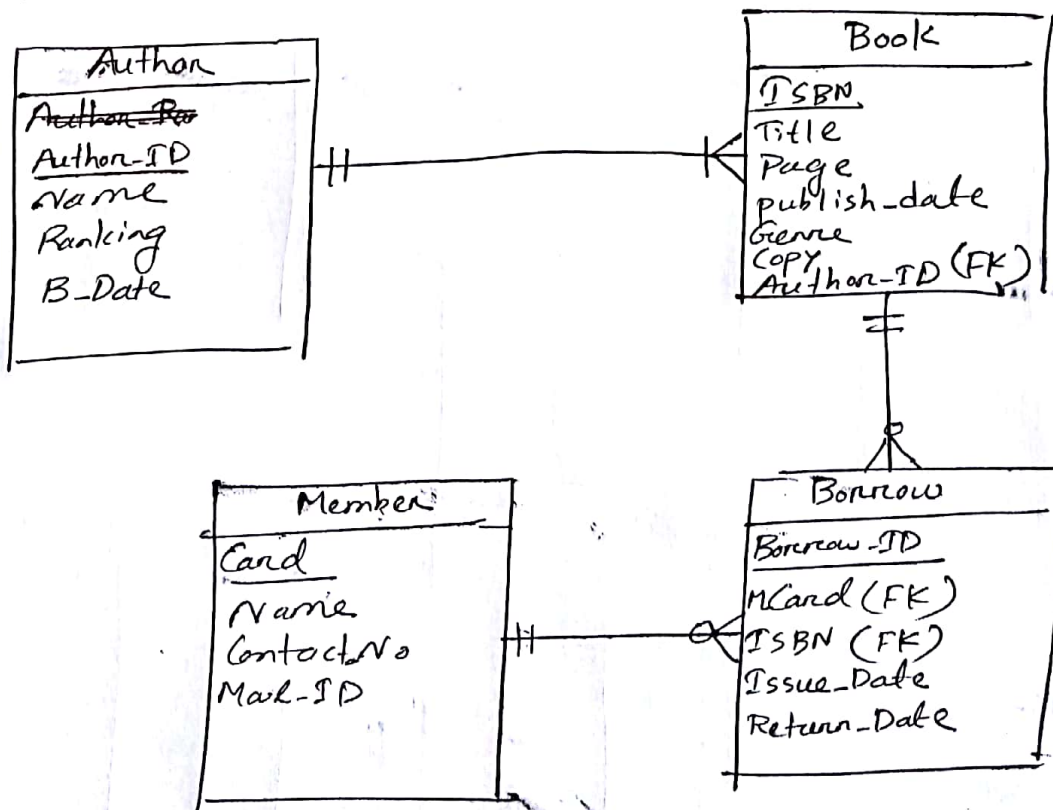 Author
Author_ID
Name
Ranking
B_Date
Book
ISBN
Title
Page
publish_date
Genre
Copy
Author_ID (FK)
Member
Card
Name
Contact_No
Mail_ID
Borrow
Borrow_ID
MCard (FK)
ISBN (FK)
Issue_Date
Return_Date